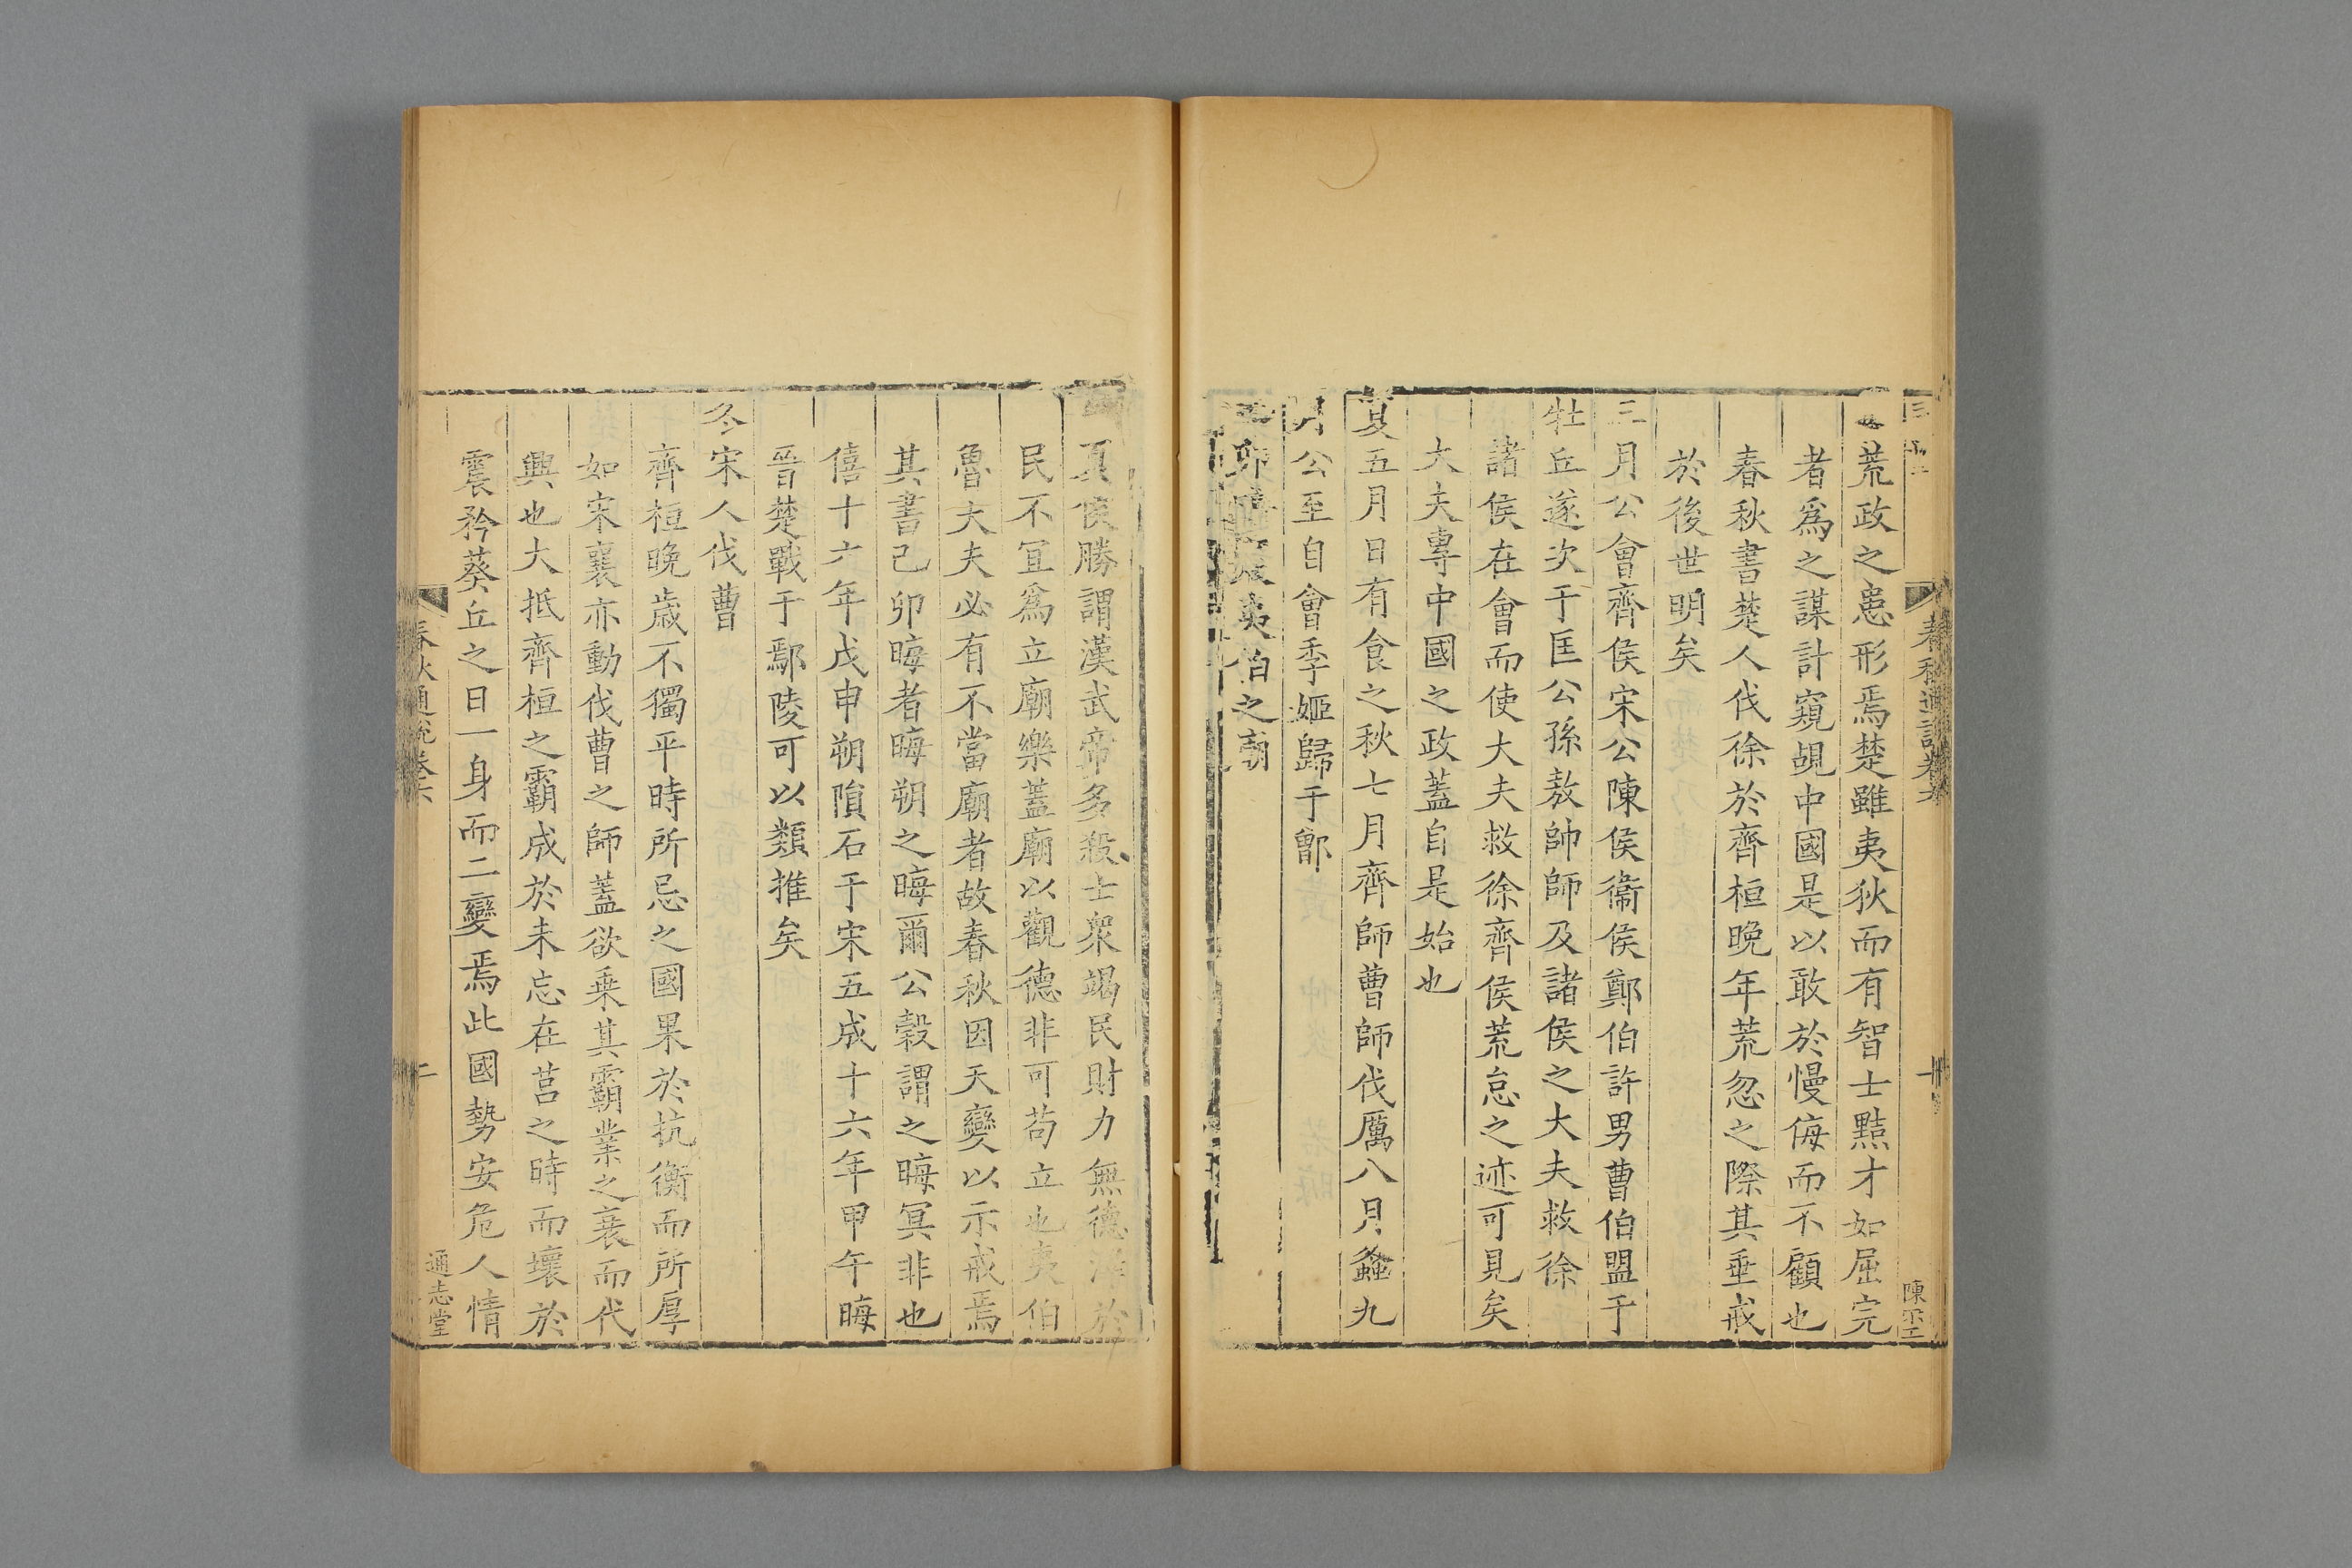 荒政之患形焉楚雖夷狄而有智士黠才如屈完
者爲之謀計窺覘中國是以敢於慢侮而不顧也
春秋書楚人伐徐於齊桓晩年荒忽之際其垂戒
於後世明矣
三月公會齊侯宋公陳侯衞侯鄭伯許男曹伯盟于
牡丘遂次于匡公孫敖帥師及諸侯之大夫救徐
諸侯在會而使大夫救徐齊侯荒怠之迹可見矣
大夫專中國之政蓋自是始也
夏五月日有食之秋七月齊師曹師伐厲八月螽九
月公至自會季姬歸于鄫
卯晦震夷伯之廟
夏侯勝謂漢武帝多殺士衆竭民財力無德澤於
民不宜爲立廟樂蓋廟以觀德非可苟立也夷伯
魯大夫必有不當廟者故春秋因天變以示戒焉
其書己卯晦者晦朔之晦爾公穀謂之晦冥非也
僖十六年戊申朔隕石于宋五成十六年甲午晦
晉楚戰于鄢陵可以類推矣
冬宋人伐曹
齊桓晚歲不獨平時所忌之國果於抗衡而所厚
如宋襄亦動伐曹之師蓋欲乗其霸業之衰而代
興也大抵齊桓之霸成於未忘在莒之時而壞於
震矜葵丘之日一身而二變焉此國勢安危人情
春秋通說卷六
通志堂